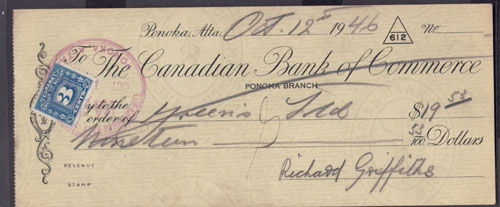 Ponoka, Alta. Oct. 12th 1946 No
612
To The Canadian Bank of Commerce
PONOKA BRANCH
Pay to the
order of Green's Ltd $19 53
Nineteen 53/100 Dollars
3
REVENUE
STAMP
Richard Griffiths